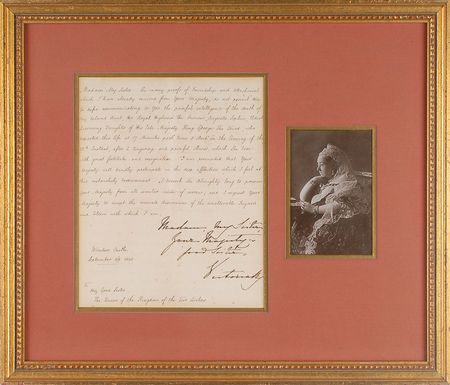 Madam My Sister. The many proofs of friendship and attachment
which I have already received from Your Majesty, do not permit me
to defer communicating to You the painful intelligence of the death of
my beloved Aunt, Her Royal Highness the Princess Augusta Sophia, Eldest
Surviving Daughter of His late Majesty King George the Third, who
departed this life at 17 Minutes past Nine o'Clock in the Evening of the
22nd Instant, after a lingering and painful illness which She bore
with great fortitude and resignation. I am persuaded that Your
Majesty will kindly participate in the deep affliction which I feel at
this melancholy bereavement. I beseech the Almighty long to preserve
Your Majesty from all similar visits of sorrow, and I request Your
Majesty to accept the renewed assurances of the unalterable Regard
and Esteem with which I am
Madam My Sister,
Your Majesty's
good Sister
Victoria R
Windsor Castle
September 1840
To
My Good Sister
The Queen of the Kingdom of the Two Sicilies